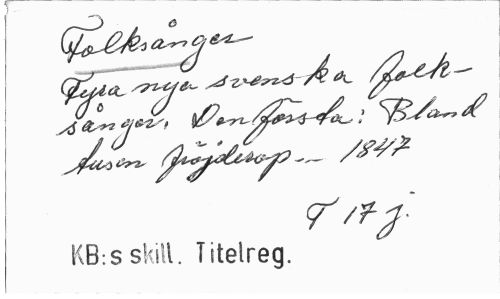 Folksånger
Fyra nya svenska folk-
sånger. Den första: Bland
tusen fröjderop... 1847
T 17 j.
KB:s skill. Titelreg.